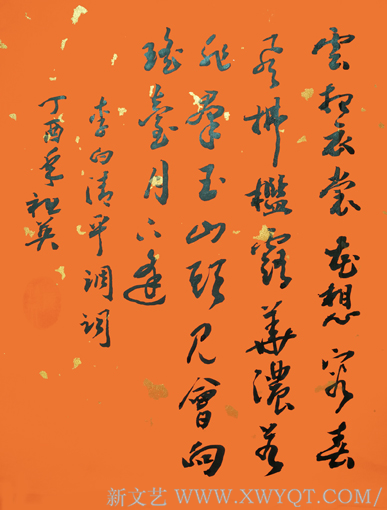 雲想衣裳花想容春
風拂檻露華濃若
非羣玉山頭見會向
瑤臺月下逢
李白清平調詞
丁酉
新文艺 WWW.XWYQT.COM/